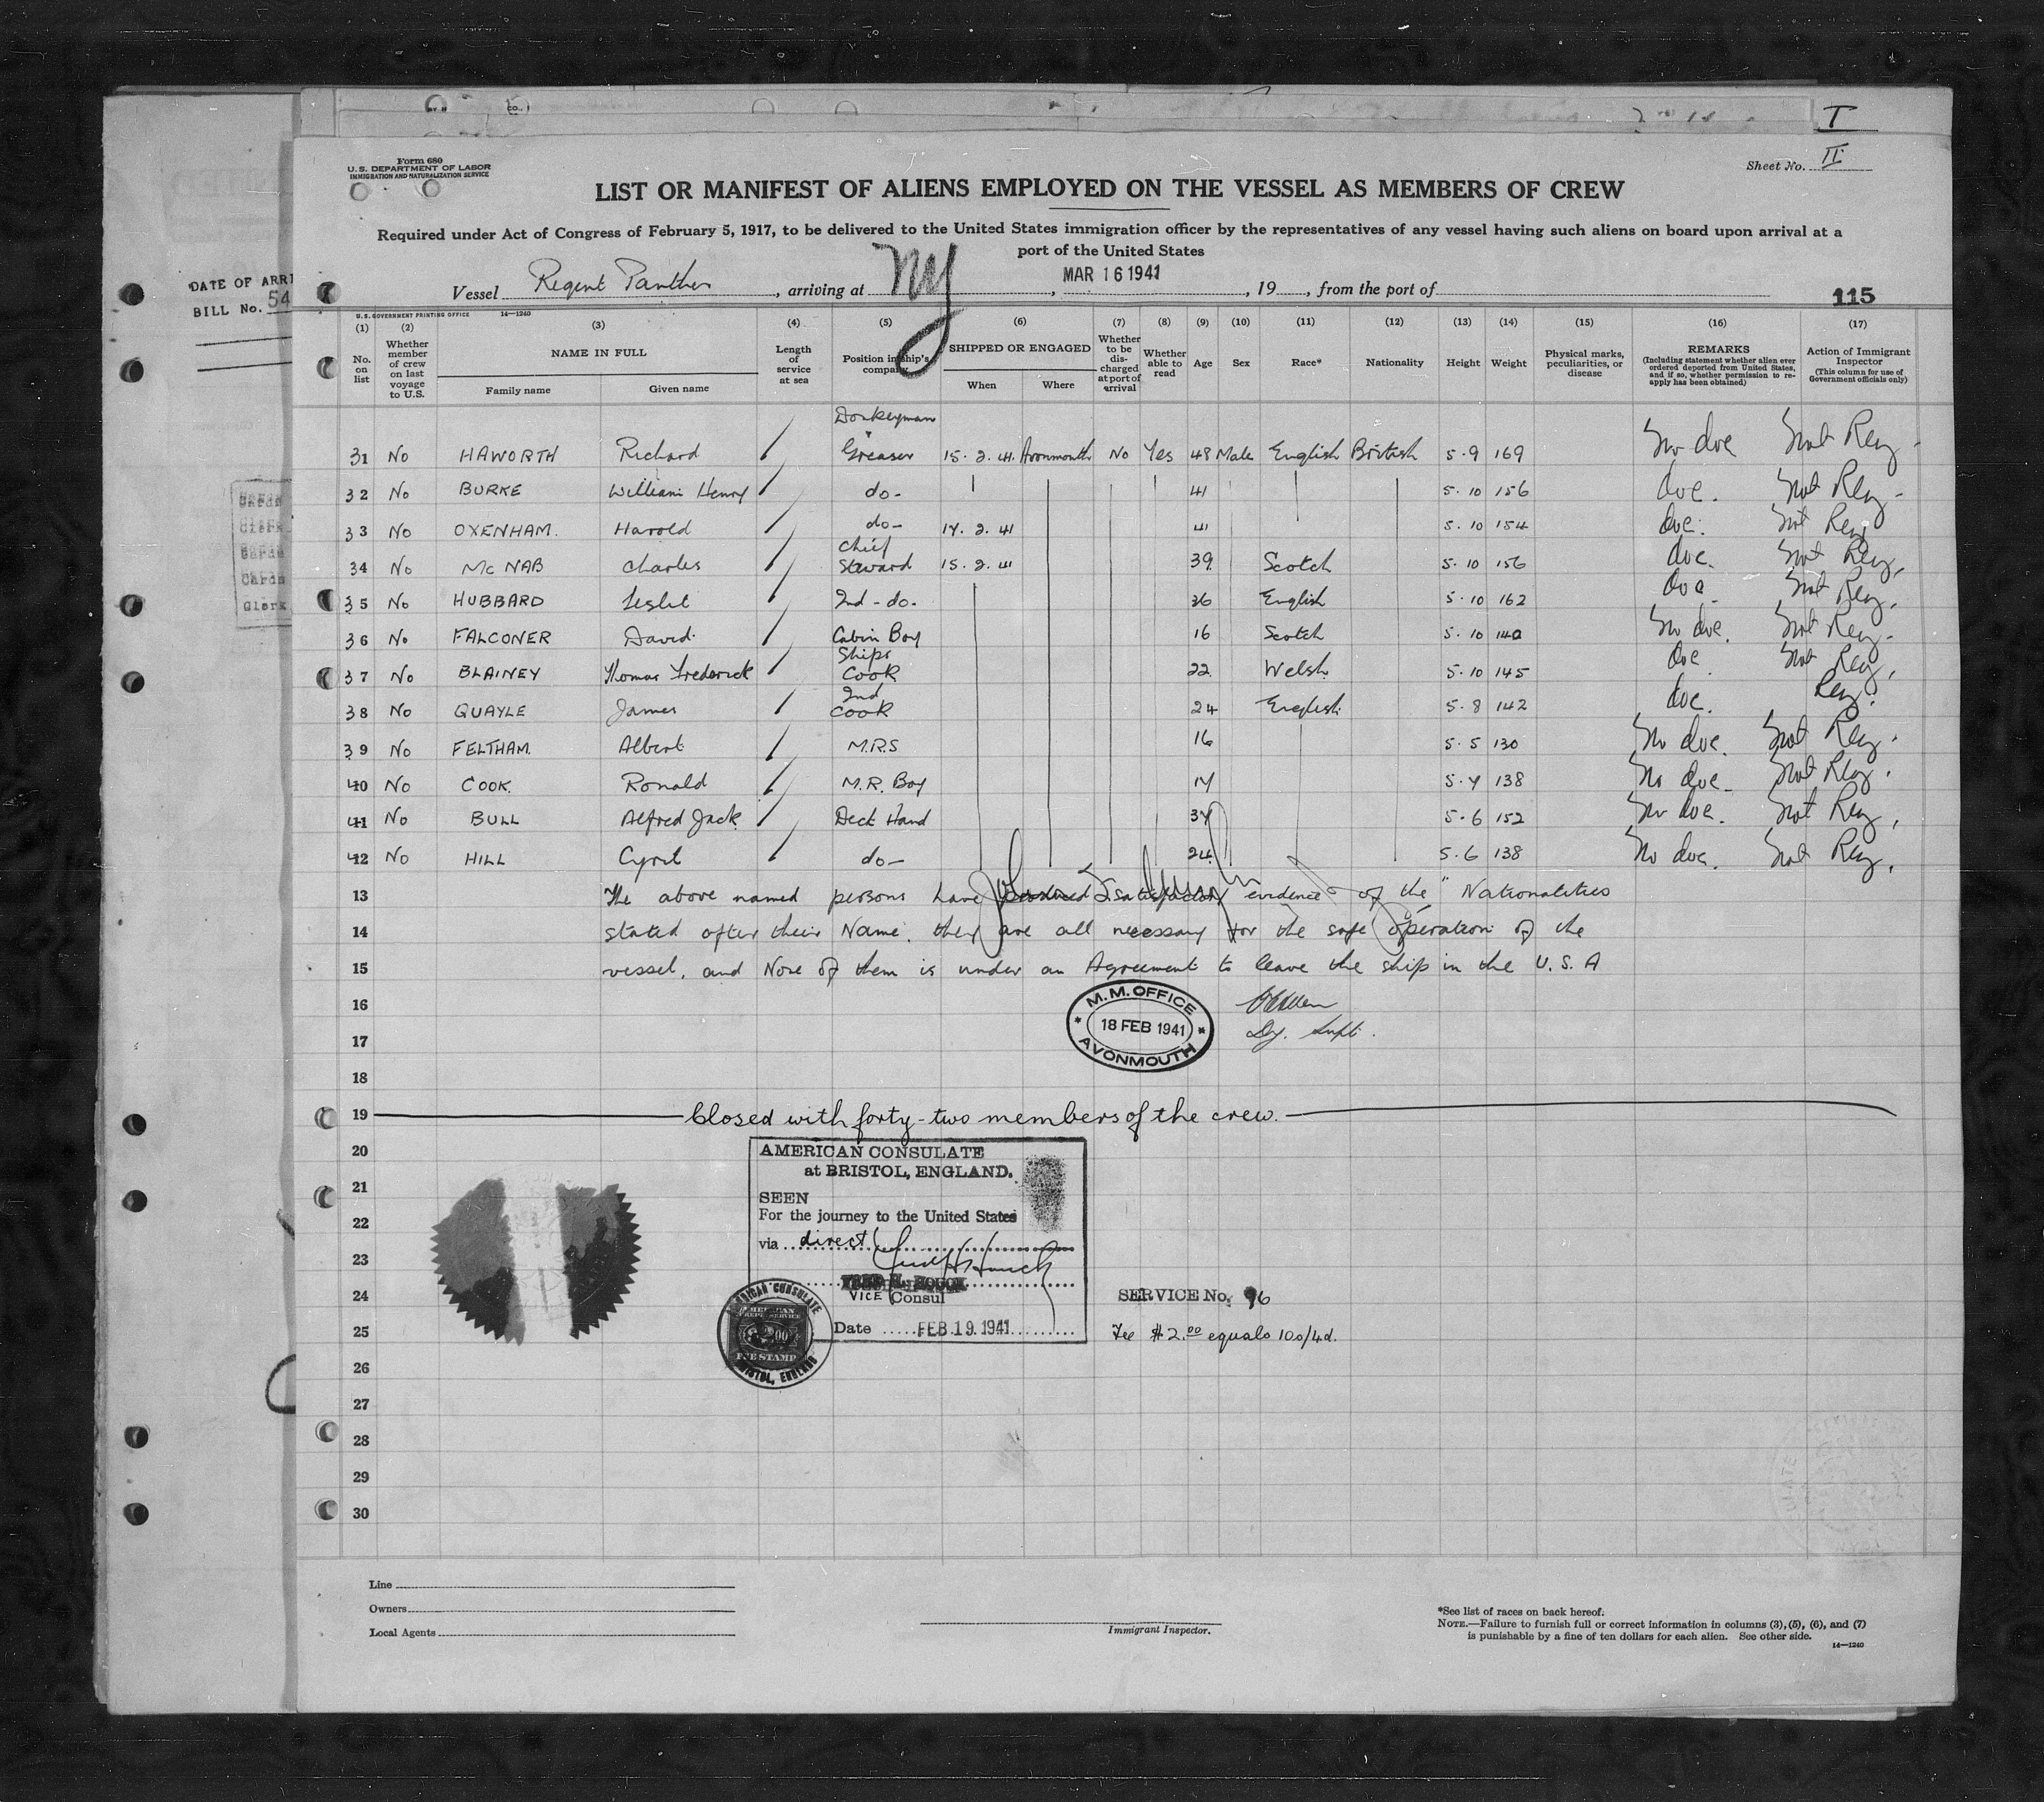 I
Form 680
U.S. DEPARTMENT OF LABOR
IMMIGRATION AND NATURALIZATION SERVICE
Sheet No. II
LIST OR MANIFEST OF ALIENS EMPLOYED ON THE VESSEL AS MEMBERS OF CREW
Required under Act of Congress of February 5, 1917, to be delivered to the United States immigration officer by the representatives of any vessel having such aliens on board upon arrival at a
port of the United States
DATE OF ARRI
BILL No. 54
Vessel Regent Panther, arriving at NY, MAR 16 1941, 19, from the port of
115
U.S. GOVERNMENT PRINTING OFFICE 14—1240
(1) (2) (3) (4) (5) (6) (7) (8) (9) (10) (11) (12) (13) (14) (15) (16) (17)
No. on list
Whether member of crew on last voyage to U.S.
NAME IN FULL
Family name
Given name
Length of service at sea
Position in ship's company
SHIPPED OR ENGAGED
When
Where
Whether to be discharged at port of arrival
Whether able to read
Age
Sex
Race*
Nationality
Height
Weight
Physical marks, peculiarities, or disease
REMARKS
(Including statement whether alien ever ordered deported from United States, and if so, whether permission to reapply has been obtained)
Action of Immigrant Inspector
(This column for use of Government officials only)
Donkeyman
31 No HAWORTH Richard Greaser 15. 2. 41. Avonmouth No Yes 48 Male English British 5-9 169 No doc Not Reg.
32 No BURKE William Henry do- 41 5-10 156 doc. Not Reg.
33 No OXENHAM. Harold do- 14. 2. 41 41 5-10 154 doc. Not Reg
34 No McNAB Charles Chief Steward 15. 2. 41 39 Scotch 5-10 156 doc. Not Reg.
35 No HUBBARD Leslie 2nd - do. 36 English 5-10 162 doc. Not Reg.
36 No FALCONER David. Cabin Boy 16 Scotch 5-10 140 No doc. Not Reg.
37 No BLAINEY Thomas Frederick Ships Cook 22 Welsh 5-10 145 doc. Not Reg.
38 No QUAYLE James 2nd Cook 24 English 5-8 142 doc. Reg.
39 No FELTHAM. Albert M.R.S 16 5-5 130 No doc. Not Reg.
40 No COOK. Ronald M.R. Boy 5-4 138 No doc. Not Reg.
41 No BULL Alfred Jack Deck Hand 5-6 152 No doc. Not Reg.
42 No HILL Cyril do- 24 5-6 138 No doc. Not Reg.
13 The above named persons have produced satisfactory evidence of the Nationalities
14 stated after their Name. they are all necessary for the safe operation of the
15 vessel, and None of them is under an Agreement to leave the ship in the U.S.A
16
17
M.M. OFFICE
18 FEB 1941
AVONMOUTH
Dy. Supt.
18
19 Closed with forty-two members of the crew.
20
AMERICAN CONSULATE
at BRISTOL, ENGLAND.
21
SEEN
22
For the journey to the United States
23
via direct
24
VICE Consul
25
Date FEB 19 1941
SERVICE No. 96
Fee $2.00 equals 10s/4d.
AMERICAN CONSULATE
2.00
FEE STAMP
BRISTOL, ENGLAND
26
27
28
29
30
Line
Owners
Local Agents
Immigrant Inspector.
*See list of races on back hereof.
NOTE.—Failure to furnish full or correct information in columns (3), (5), (6), and (7)
is punishable by a fine of ten dollars for each alien. See other side.
14—1240